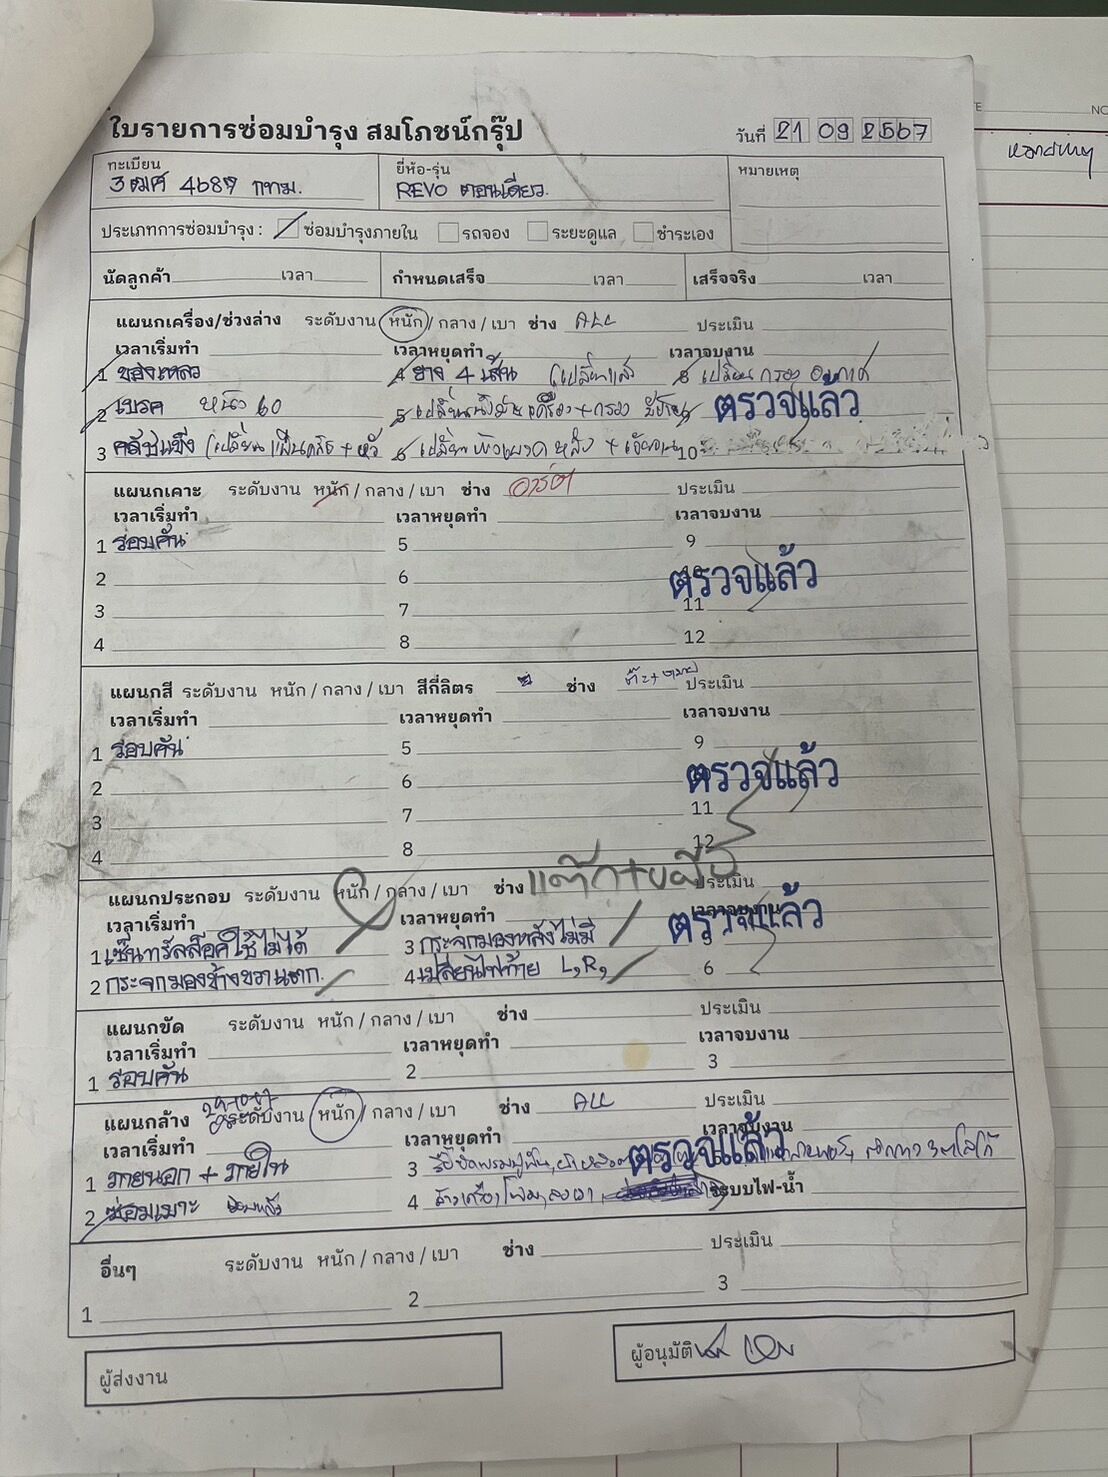 ใบรายการซ่อมบำรุง สมโภชน์กรุ๊ป
วันที่ 21 09 2567
ทะเบียน
3ฒศ 4687 กทม.
ยี่ห้อ-รุ่น
REVO ตอนเดียว
หมายเหตุ
ประเภทการซ่อมบำรุง : ซ่อมบำรุงภายใน รถจอง ระยะดูแล ชำระเอง
นัดลูกค้า เวลา กำหนดเสร็จ เวลา เสร็จจริง เวลา
แผนกเครื่อง/ช่วงล่าง ระดับงาน หนัก / กลาง / เบา ช่าง ALL ประเมิน
เวลาเริ่มทำ เวลาหยุดทำ เวลาจบงาน
1 ของเหลว 4 ยาง 4 เส้น (เปลี่ยนแล้ว 8 เปลี่ยน กรอง อากาศ
2 เบรค หน้า 60 5 เปลี่ยนน้ำมันเครื่อง + กรอง
ตรวจแล้ว
3 คลัชแข็ง (เปลี่ยน 6 เปลี่ยน หลัง + 10
แผนกเคาะ ระดับงาน หนัก / กลาง / เบา ช่าง ประเมิน
เวลาเริ่มทำ เวลาหยุดทำ เวลาจบงาน
1 รอบคัน 5 9
2 6 10
ตรวจแล้ว
3 7 11
4 8 12
แผนกสี ระดับงาน หนัก / กลาง / เบา สีกี่ลิตร ช่าง ประเมิน
เวลาเริ่มทำ เวลาหยุดทำ เวลาจบงาน
1 รอบคัน 5 9
2 6
ตรวจแล้ว
3 7 11
4 8 12
แผนกประกอบ ระดับงาน หนัก / กลาง / เบา ช่าง ประเมิน
เวลาเริ่มทำ เวลาหยุดทำ เวลาจบงาน
ตรวจแล้ว
1 เซ็นทรัลล็อคใช้ไม่ได้ 3 กระจกมองหลังไม่มี 5
2 กระจกมองข้างขวาแตก 4 เปลี่ยนไฟท้าย L,R, 6
แผนกขัด ระดับงาน หนัก / กลาง / เบา ช่าง ประเมิน
เวลาเริ่มทำ เวลาหยุดทำ เวลาจบงาน
1 รอบคัน 2 3
แผนกล้าง ระดับงาน หนัก / กลาง / เบา ช่าง ALL ประเมิน
เวลาเริ่มทำ เวลาหยุดทำ เวลาจบงาน
ตรวจแล้ว
1 ภายนอก + ภายใน 3
2 ซ่อมเบาะ 4 ระบบไฟ-น้ำ
อื่นๆ ระดับงาน หนัก / กลาง / เบา ช่าง ประเมิน
1 2 3
ผู้ส่งงาน
ผู้อนุมัติ